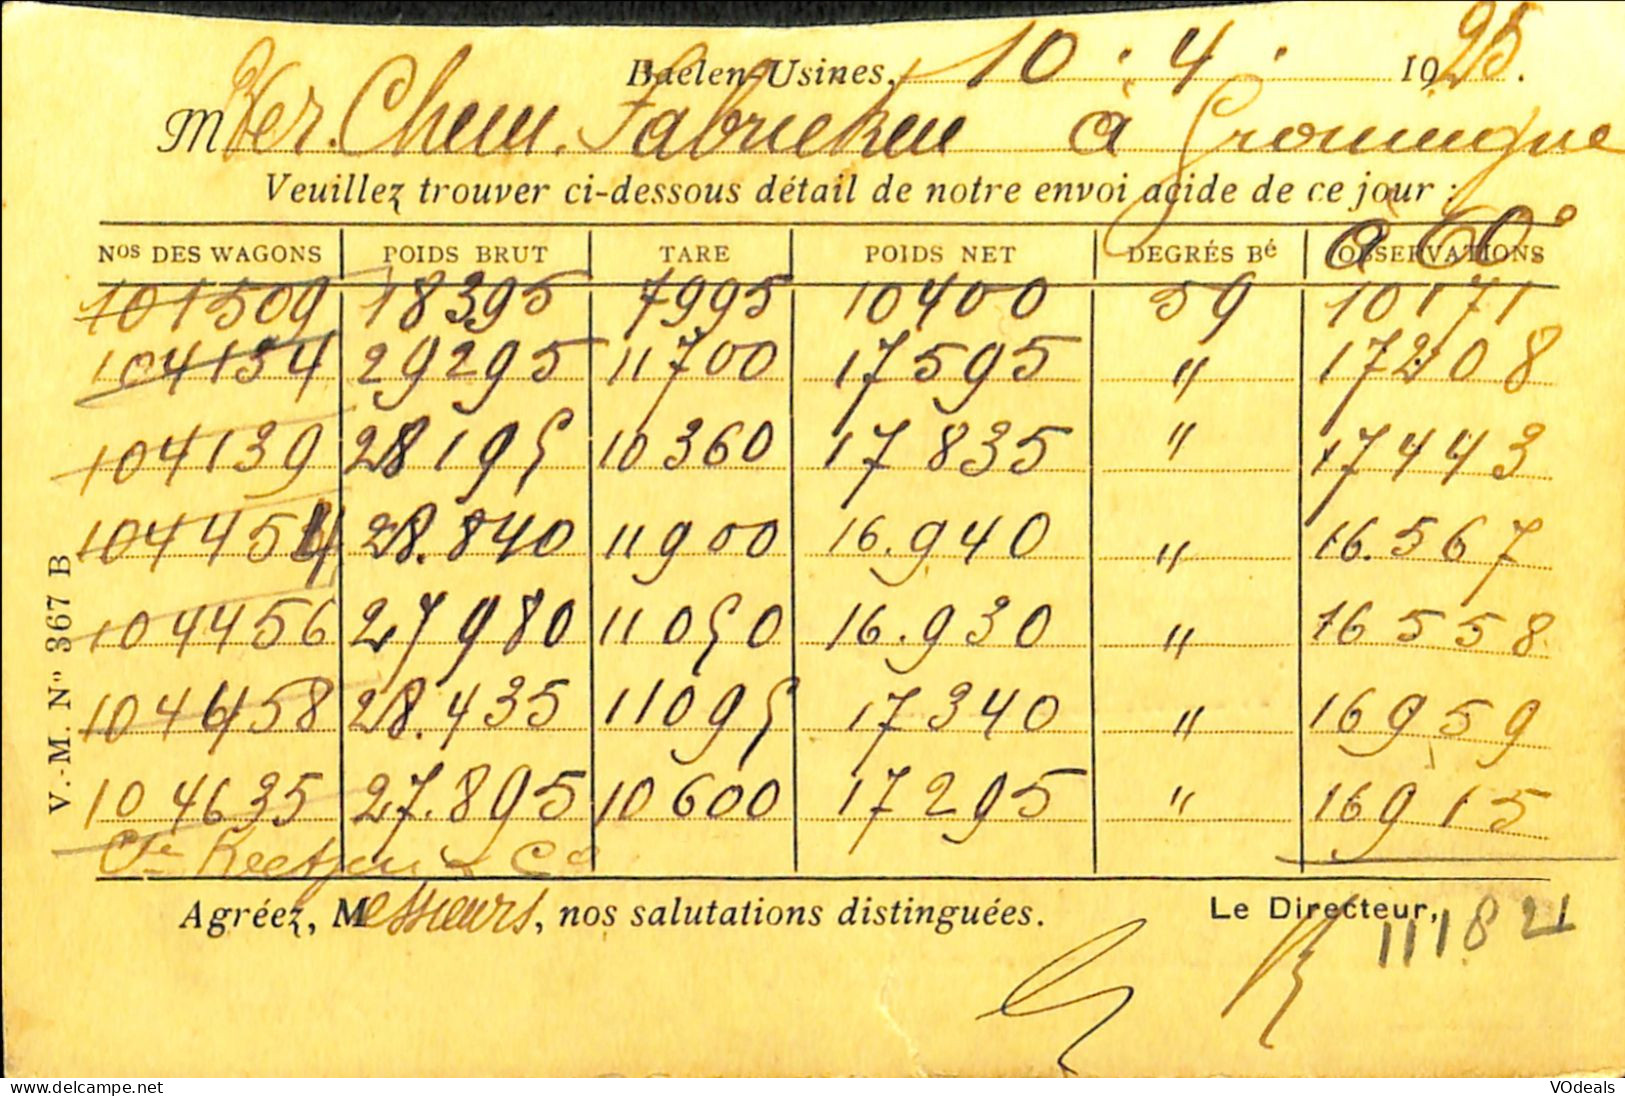 Baelen-Usines, 10 . 4 . 1925.
M Ver. Chem. Fabrieken à Groningue
Veuillez trouver ci-dessous détail de notre envoi acide de ce jour :
à 60°
Nos DES WAGONS POIDS BRUT TARE POIDS NET DEGRÉS Bé OBSERVATIONS
101509 18395 7995 10400 59 10171
104134 29295 11700 17595 " 17208
104139 28195 10360 17835 " 17443
104454 28.840 11900 16.940 " 16.567
104456 27980 11050 16.930 " 16558
104458 28.435 11095 17340 " 16959
104635 27.895 10600 17295 " 16915
& Co
Agréez, Messieurs, nos salutations distinguées.
Le Directeur,
111821
V.-M. No 367 B
VOdeals
www.delcampe.net